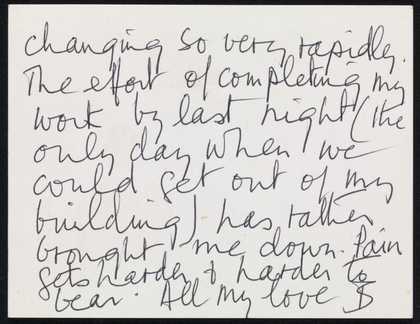 changing so very rapidly.
The effort of completing my
work by last night (the
only day when we
could get out of my
building) has rather
brought me down. Pain
gets harder & harder to
bear. All my love B